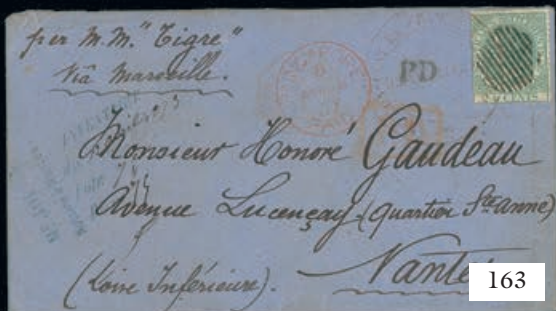 per M.M. "Tigre"
Viâ Marseille.
PD
24 CENTS
Monsieur Honoré Gaudeau
Avenue Lucençay (quartier Ste anne)
(Loire Inférieure).
Nantes
163